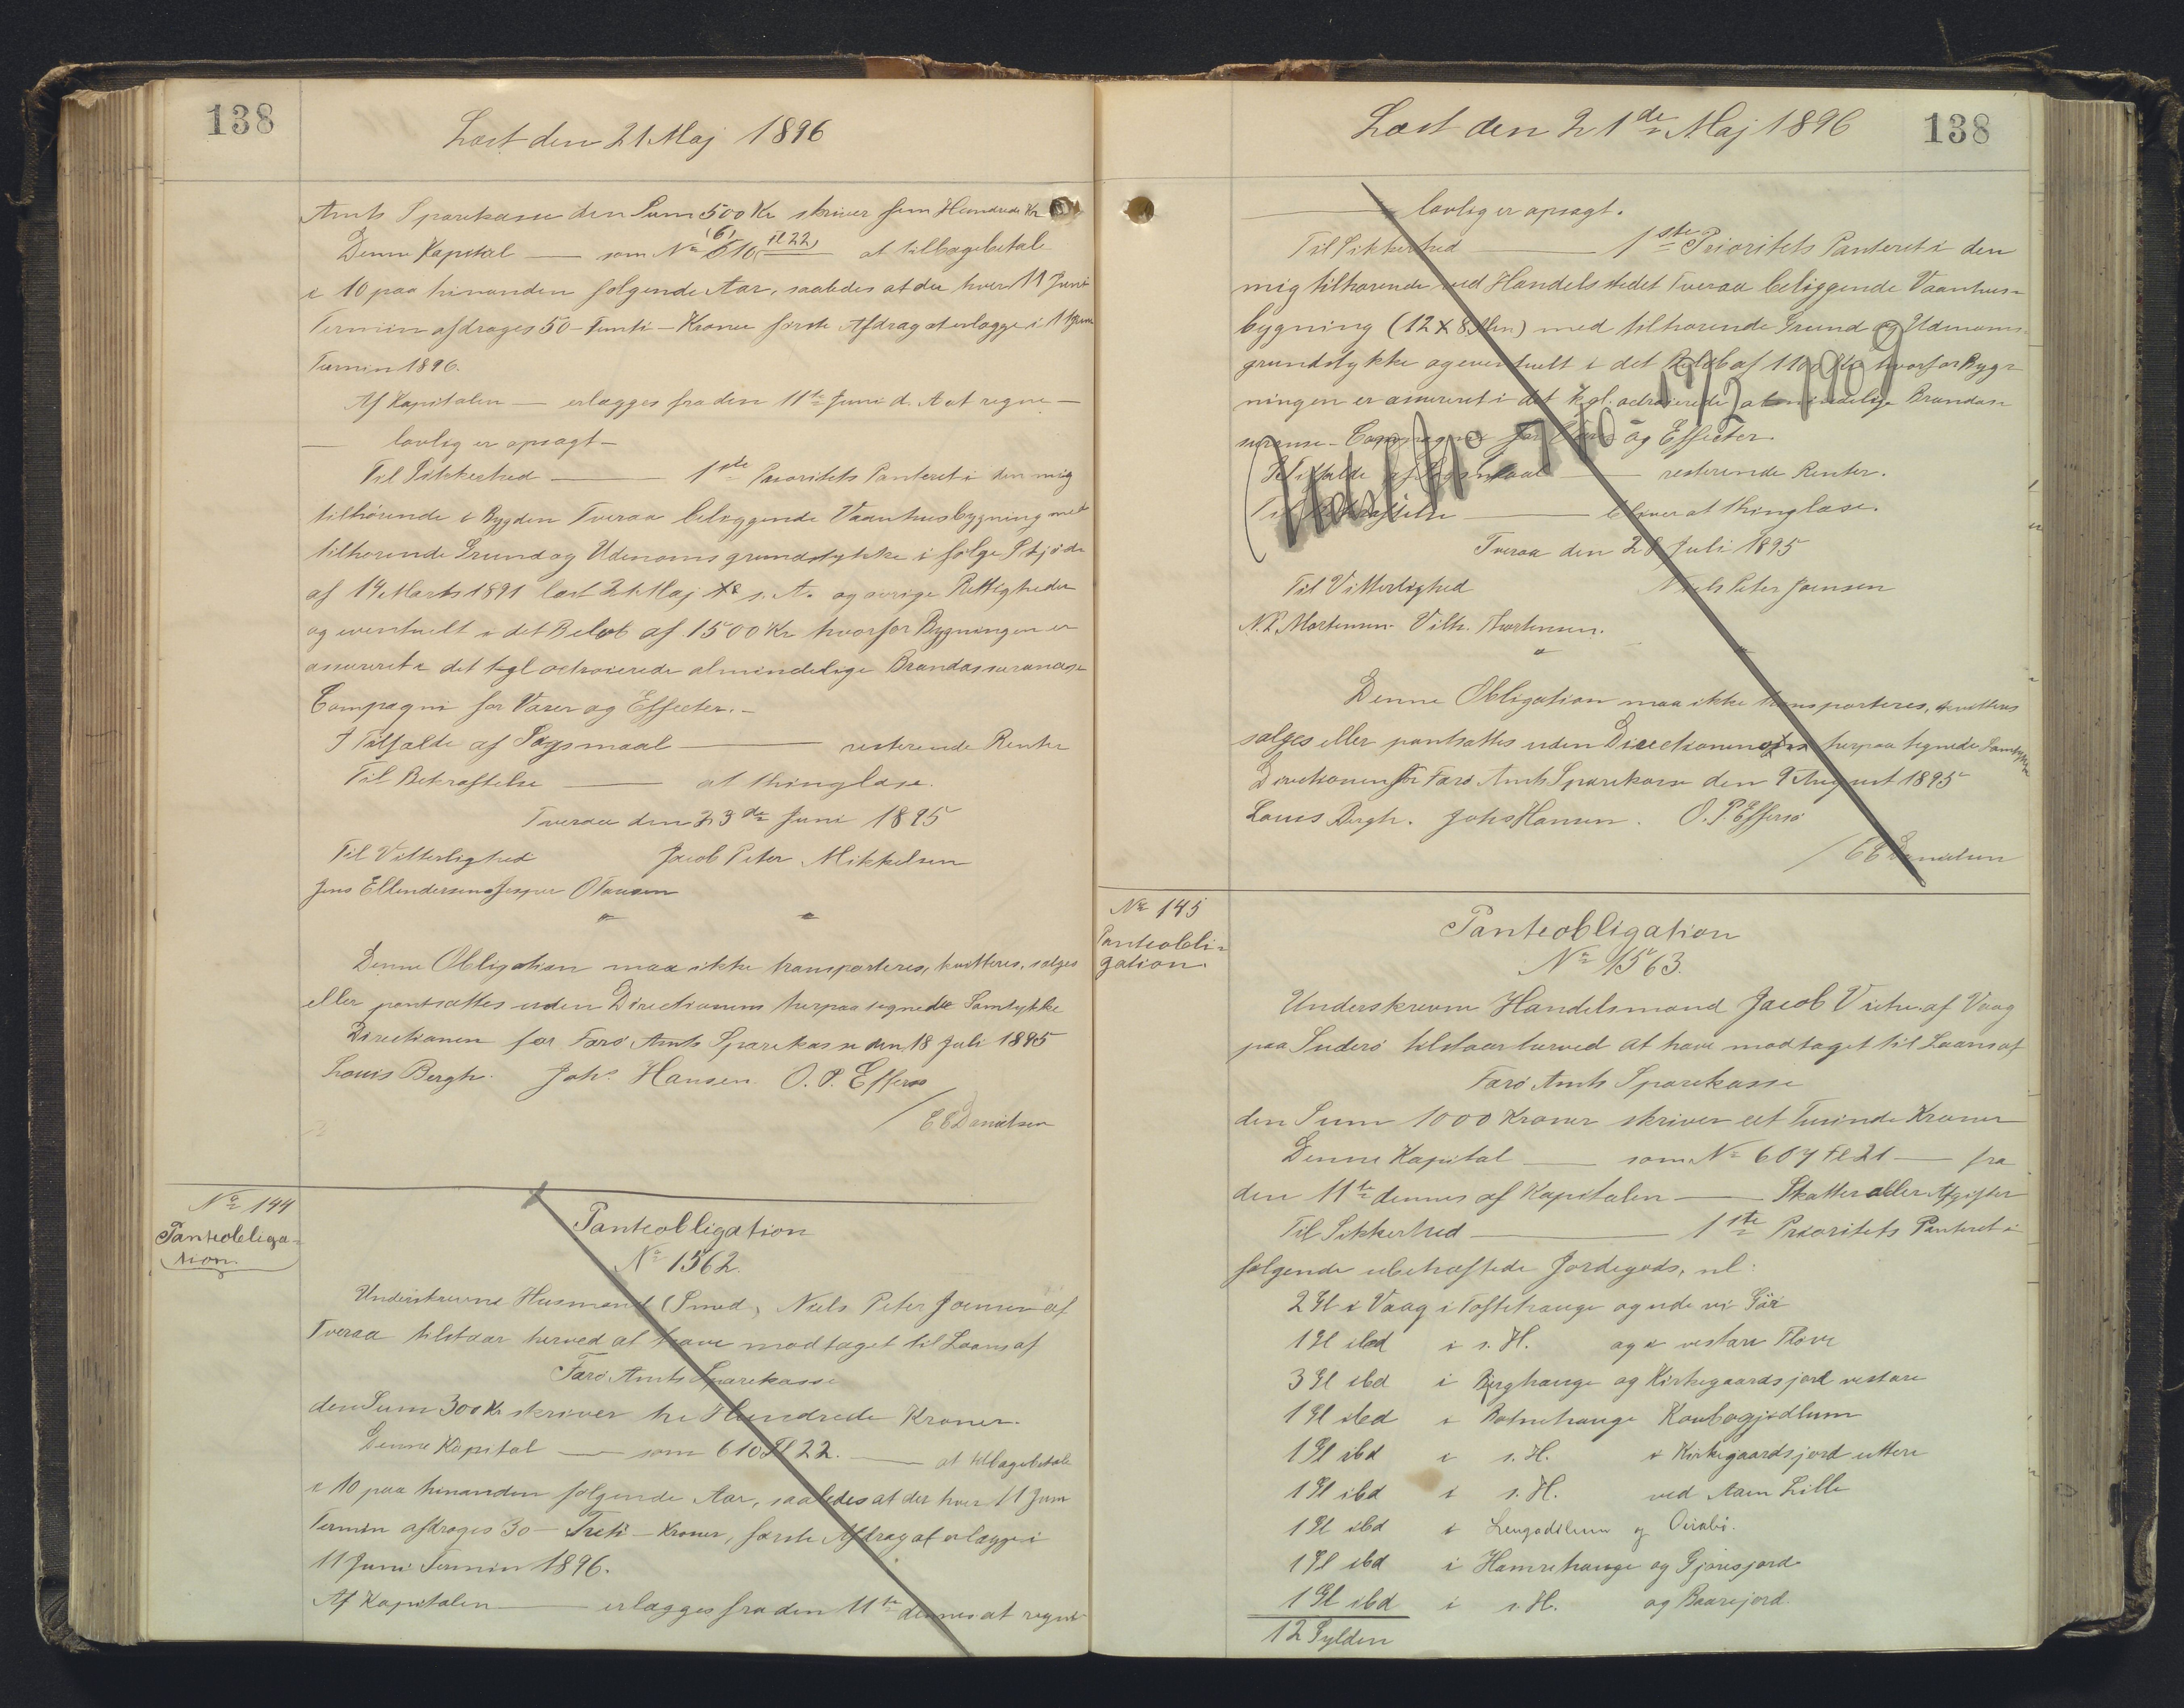 138
Læst den 21 Maj 1896
Amts Sparekasse den Sum 500 Kr skriver fem Hundrede Kr
Denne Kapital — som No 610 (Fl 22) at tilbagebetale
i 10 paa hinanden følgende Aar, saaledes at der hver 11 Juni
Termin afdrages 50 - Femti - Kroner første Afdrag at erlægge i 11 Juni
Termin 1896.
Af Kapitalen — erlægges fra den 11te Juni d. A at regne —
— lovlig er opsagt —
Til Sikkerhed — 1ste Prioritets Panteret i den mig
tilhørende i Bygden Tveraa beliggende Vaanhusbygning med
tilhørende Grund og Udenomsgrundstykke i følge Skjøde
af 14 Marts 1891 læst 21 Maj s. A. og øvrige Rettigheder
og eventuelt i det Beløb af 1500 Kr hvorfor Bygningen er
assureret i det kgl octroierede almindelige Brandassurance
Compagni for Varer og Effecter. —
I Tilfælde af Søgsmaal — resterende Renter
Til Bekræftelse — at thinglæse.
Tveraa den 23de Juni 1895
Til Vitterlighed Jacob Peter Mikkelsen
Jens Ellendersen Jesper O Tausen
Denne Obligation maa ikke transporteres, kvitteres, sælges
eller pantsættes uden Directionens herpaa tegnede Samtykke
Directionen for Færø Amts Sparekasse den 18 Juli 1895
Louis Bergh. Johs Hansen. O. P. Effersø
/ E E Danielsen
No 144
Panteobliga-
tion.
Panteobligation
No 1562.
Underskrevne Husmand (Smed) Niels Peter Joensen af
Tveraa tilstaar herved at have modtaget til Laans af
Færø Amts Sparekasse
den Sum 300 Kr skriver tre Hundrede Kroner.
Denne Kapital — som 610 Fl 22. — at tilbagebetale
i 10 paa hinanden følgende Aar, saaledes at der hver 11 Juni
Termin afdrages 30 - Treti - Kroner, første Afdrag at erlægge i
11 Juni Termin 1896.
Af Kapitalen — erlægges fra den 11te dennes at regne
Læst den 21de Maj 1896
138
— lovlig er opsagt.
Til Sikkerhed — 1ste Prioritets Panteret i den
mig tilhørende ved Handelsstedet Tveraa beliggende Vaanhus-
bygning (12 x 8 Aln) med tilhørende Grund og Udenoms-
grundstykke og eventuelt i det Beløb af 1100 Kr hvorfor Byg-
ningen er assureret i det Kgl. octroierede almindelige Brandas-
surance - Compagni for Varer og Effecter.
I Tilfælde af Søgsmaal — resterende Renter.
Til Bekræftelse — bliver at thinglæse.
Tveraa den 28 Juli 1895
Til Vitterlighed Niels Peter Joensen
N. P. Mortensen. Vilh. Thorstensen.
Denne Obligation maa ikke transporteres, kvitteres
sælges eller pantsættes uden Directionens herpaa tegnede Samtykke
Directionen for Færø Amts Sparekasse den 9 August 1895
Louis Bergh. Johs Hansen. O. P. Effersø
/ E E Danielsen
No 145
Panteobli-
gation.
Panteobligation
No 1563.
Underskrevne Handelsmand Jacob Vithe. af Vaag
paa Suderø tilstaar herved at have modtaget til Laans af
Færø Amts Sparekasse
den Sum 1000 Kroner skriver eet Tusinde Kroner
Denne Kapital — som No 607 Fl 21 — fra
den 11te dennes af Kapitalen — Skatter eller Afgifter
Til Sikkerhed — 1ste Prioritets Panteret i
følgende ubehæftede Jordegods, nl:
2 Gl i Vaag i Toftehauge og ude vi Gär
1 Gl ibd i s. H. og i vestare Flove
3 Gl ibd i Byrghauge og Kirkegaardsjord vestare
1 Gl ibd i Botnehauge Konbogjødlum
1 Gl ibd i s. H. i Kirkegaardsjord uttere
1 Gl ibd i s. H. ved Aaen Lille
1 Gl ibd i Lengodilum og Oirabi.
1 Gl ibd i Hamrehauge og Gjøresjord
1 Gl ibd i s. H. og Baarejord.
12 Gylden